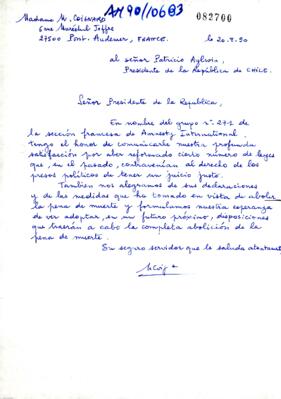 AM 90/10683
082700
Madame M. COIGNARD
6 rue Maréchal Joffre
27500 Pont-Audemer, FRANCE.
le 20.8.90
al señor Patricio Aylwin,
Presidente de la República de CHILE.
Señor Presidente de la Republica,
En nombre del grupo n° 291 de
la sección francesa de Amnesty International
tengo el honor de comunicarle nuestra profunda
satisfacción por aber reformado cierto número de leyes
que, en el pasado, contravenían al derecho de los
presos políticos de tener un juicio justo.
Tambien nos alegramos de sus declaraciones
y de las medidas que ha tomado en vista de abolir
la pena de muerte y formulamos nuestra esperanza
de ver adoptar, en un futuro próximo, disposiciones
que traerán a cabo la completa abolición de la
pena de muerte.
Su seguro servidor que le saluda atentamente